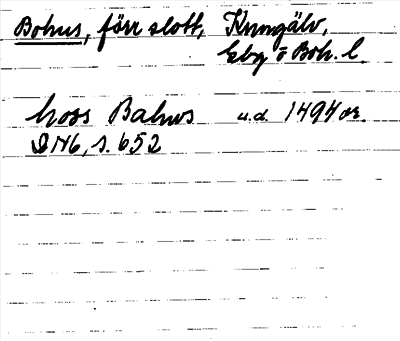 Bohus, förr slott, Kungälv,
Göbg o Boh. l.
hoss Bahus u.d. 1494 or.
DN6, s. 652